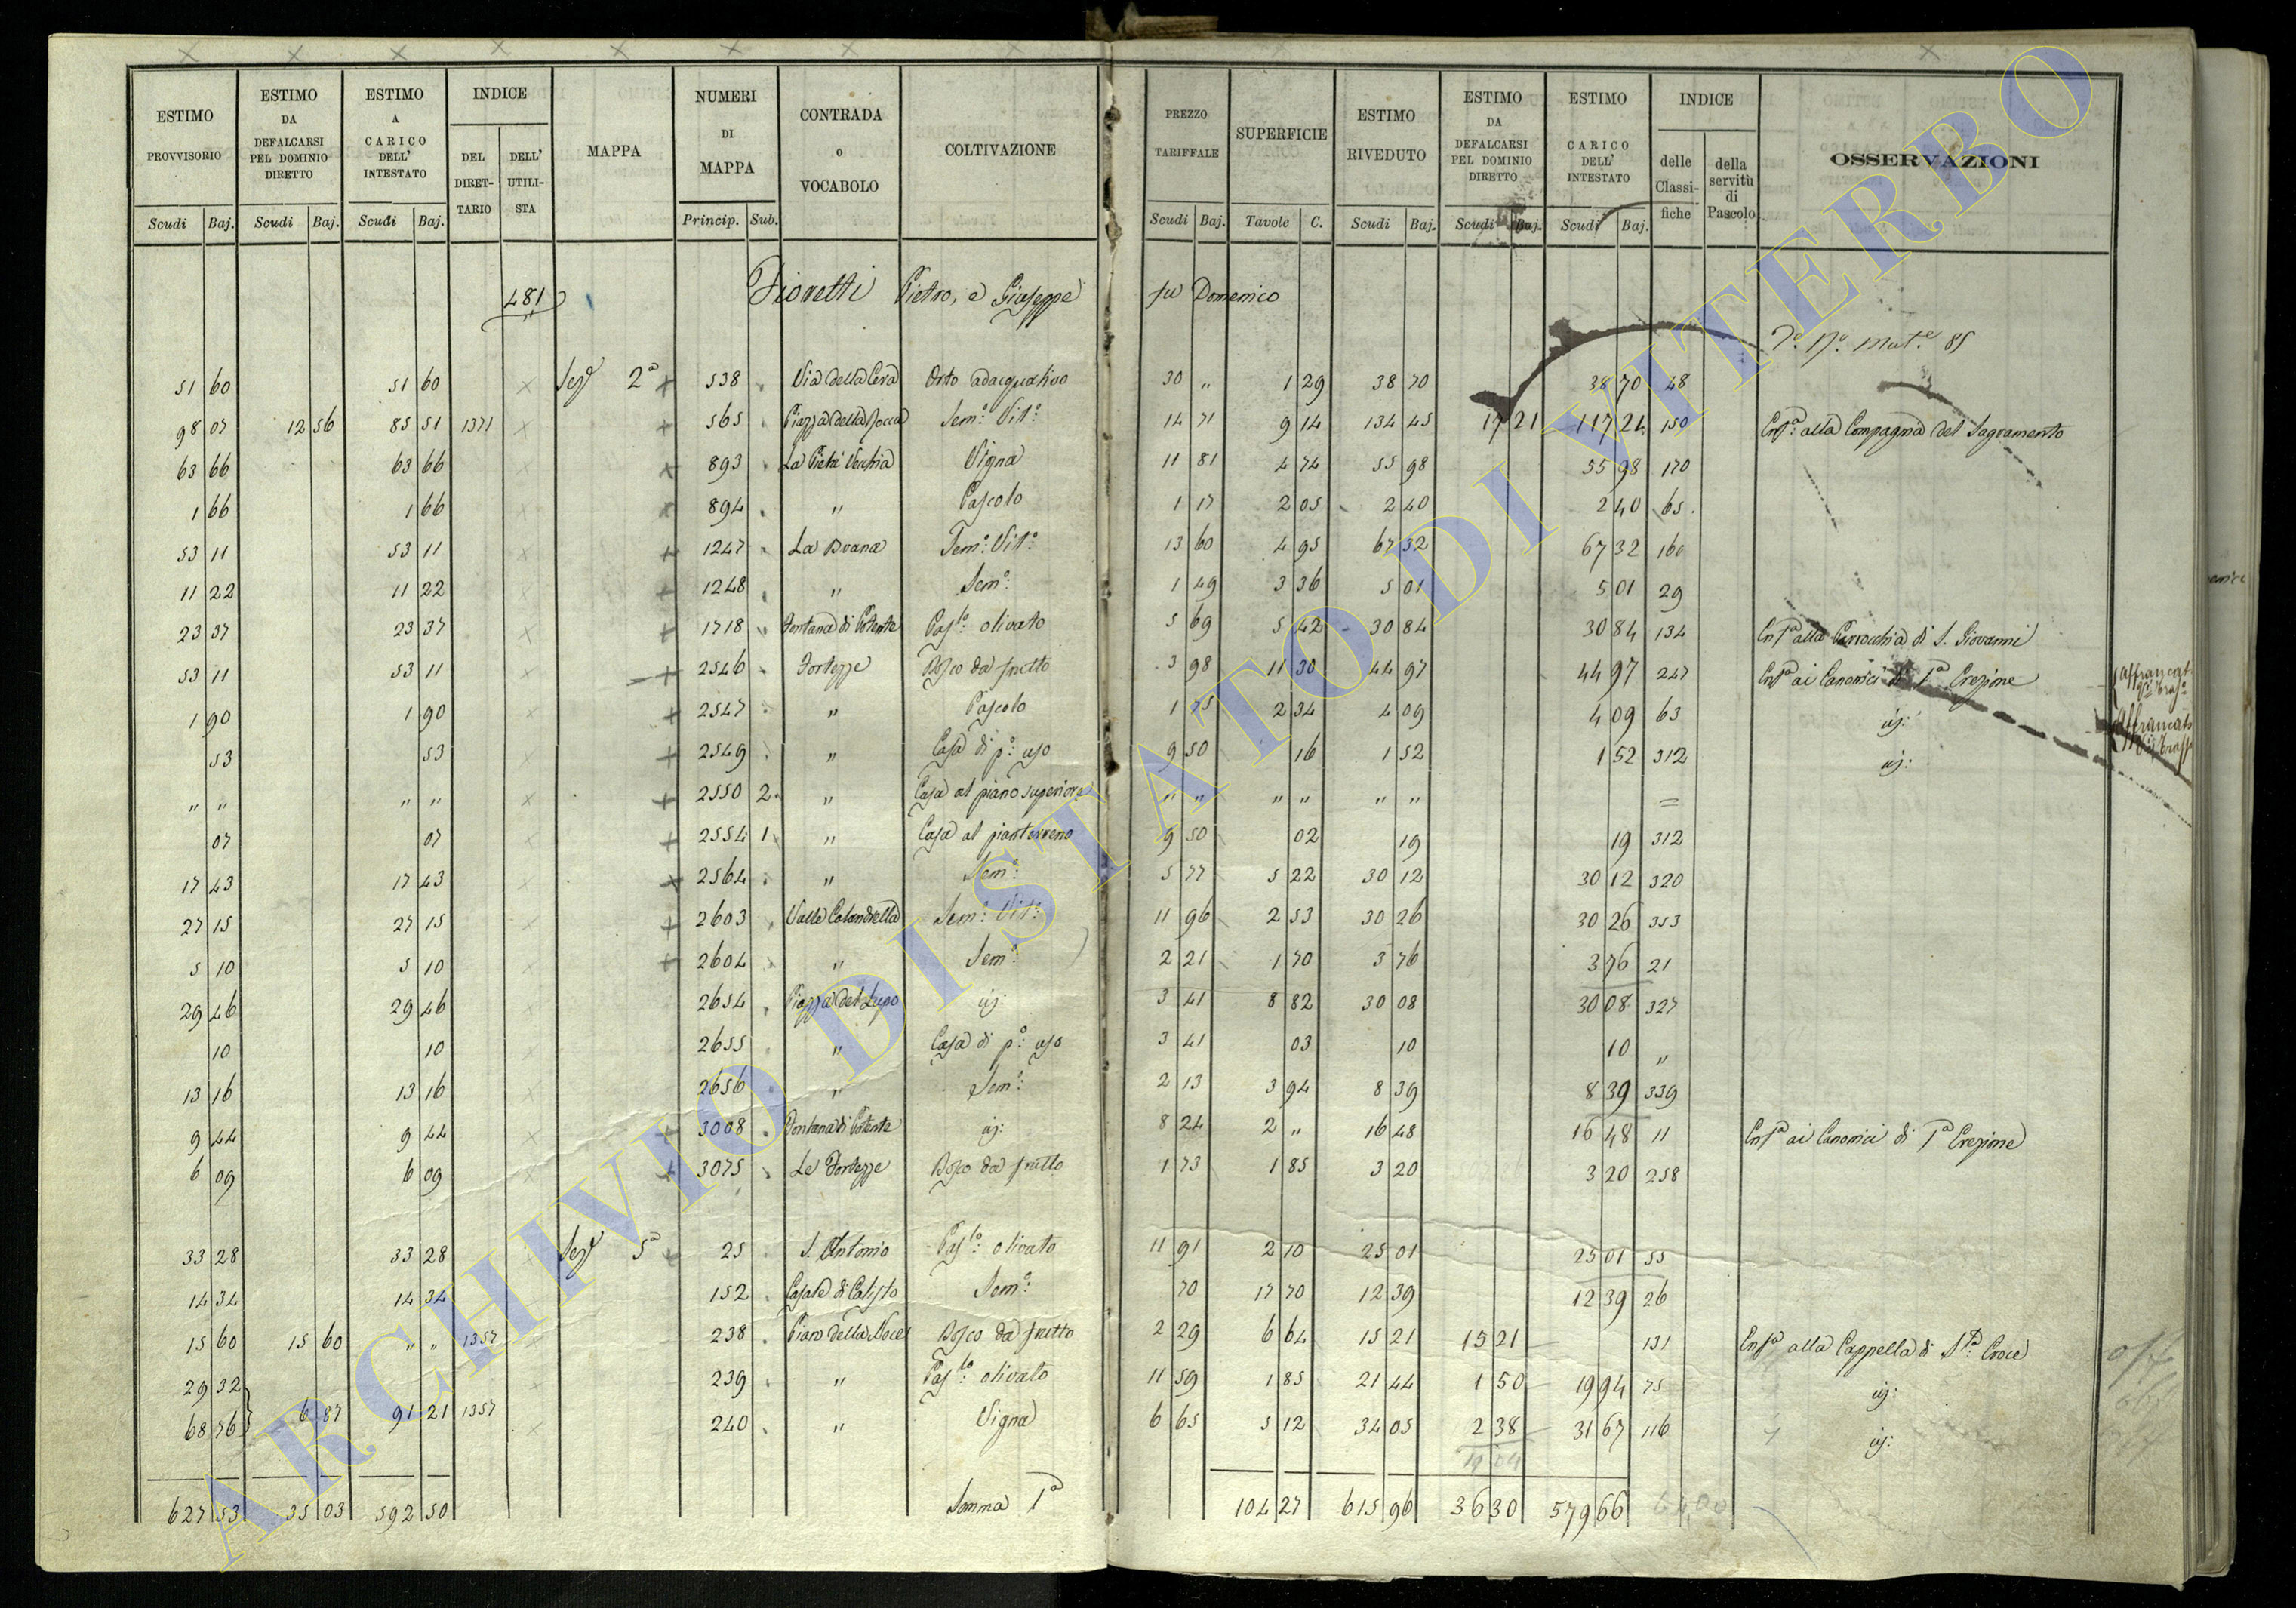 ESTIMO PROVVISORIO | ESTIMO DA DEFALCARSI PEL DOMINIO DIRETTO | ESTIMO A CARICO DELL' INTESTATO | INDICE | MAPPA | NUMERI DI MAPPA | CONTRADA o VOCABOLO | COLTIVAZIONE | PREZZO TARIFFALE | SUPERFICIE | ESTIMO RIVEDUTO | ESTIMO DA DEFALCARSI PEL DOMINIO DIRETTO | ESTIMO A CARICO DELL' INTESTATO | INDICE | OSSERVAZIONI
DEL DIRETTARIO | DELL' UTILISTA | delle Classifiche | della servitù di Pascolo
Scudi | Baj. | Scudi | Baj. | Scudi | Baj. | Princip. | Sub. | Scudi | Baj. | Tavole | C. | Scudi | Baj. | Scudi | Baj. | Scudi | Baj.
481 Fioretti Pietro, e Giuseppe fu Domenico
85
51 60 | 51 60 | Sezᵉ 2ª | 538 | Via della Cera | Orto adacquativo | 30 " | 1 29 | 38 70 | 38 70 | 48
98 07 | 12 56 | 85 51 | 1371 | 565 | Piazza della Rocca | Semº Vitº | 14 71 | 9 14 | 134 45 | 17 21 | 117 24 | 150 | Enfª alla Compagnia del Sagramento
63 66 | 63 66 | 893 | La Pietà Vecchia | Vigna | 11 81 | 4 74 | 55 98 | 55 98 | 170
1 66 | 1 66 | 894 | " | Pascolo | 1 17 | 2 05 | 2 40 | 2 40 | 65
53 11 | 53 11 | 1247 | La Buana | Semº Vitº | 13 60 | 4 95 | 67 32 | 67 32 | 160
11 22 | 11 22 | 1248 | " | Semº | 1 49 | 3 36 | 5 01 | 5 01 | 29
23 37 | 23 37 | 1718 | Fontana di Potente | Pasˡº olivato | 5 69 | 5 42 | 30 84 | 30 84 | 134 | Enfª alla Parrocchia di S. Giovanni
53 11 | 53 11 | 2546 | Fortezze | Bosco da frutto | 3 98 | 11 30 | 44 97 | 44 97 | 247 | Enfª ai Canonici di 1ª Erezione
1 90 | 1 90 | 2547 | " | Pascolo | 1 75 | 2 34 | 4 09 | 4 09 | 63 | id:
53 | 53 | 2549 | " | Casa di pº uso | 9 50 | 16 | 1 52 | 1 52 | 312 | id:
" " | " " | 2550 | 2 | " | Casa al piano superiore | " " | " " | " " | =
07 | 07 | 2554 | 1 | " | Casa al pianterreno | 9 50 | 02 | 19 | 19 | 312
17 43 | 17 43 | 2564 | " | Semº | 5 77 | 5 22 | 30 12 | 30 12 | 320
27 15 | 27 15 | 2603 | Valle Calandrella | Semº Vitº | 11 96 | 2 53 | 30 26 | 30 26 | 353
5 10 | 5 10 | 2604 | " | Semº | 2 21 | 1 70 | 3 76 | 3 76 | 21
29 46 | 29 46 | 2654 | Piazza del Lupo | id: | 3 41 | 8 82 | 30 08 | 30 08 | 327
10 | 10 | 2655 | " | Casa di pº uso | 3 41 | 03 | 10 | 10 | "
13 16 | 13 16 | 2656 | " | Semº | 2 13 | 3 94 | 8 39 | 8 39 | 339
9 44 | 9 44 | 3008 | Fontana di Potente | id: | 8 24 | 2 " | 16 48 | 16 48 | 11 | Enfª ai Canonici di 1ª Erezione
6 09 | 6 09 | 3075 | Le Fortezze | Bosco da frutto | 1 73 | 1 85 | 3 20 | 3 20 | 258
33 28 | 33 28 | Sezᵉ 5ª | 25 | S. Antonio | Pasˡº olivato | 11 91 | 2 10 | 25 01 | 25 01 | 55
14 34 | 14 34 | 152 | Casale di Calisto | Semº | 70 | 17 70 | 12 39 | 12 39 | 26
15 60 | 15 60 | " " | 1357 | 238 | Piano della Noce | Bosco da frutto | 2 29 | 6 64 | 15 21 | 15 21 | 131 | Enfª alla Cappella di Sᵗª Croce
29 32 | 239 | " | Pasˡº olivato | 11 59 | 1 85 | 21 44 | 1 50 | 19 94 | 75 | id:
68 76 | 6 87 | 91 21 | 1357 | 240 | " | Vigna | 6 65 | 5 12 | 34 05 | 2 38 | 31 67 | 116 | id:
19 09
627 53 | 35 03 | 592 50 | Somma 1ª | 104 27 | 615 96 | 36 30 | 579 66
ARCHIVIO DI STATO DI VITERBO